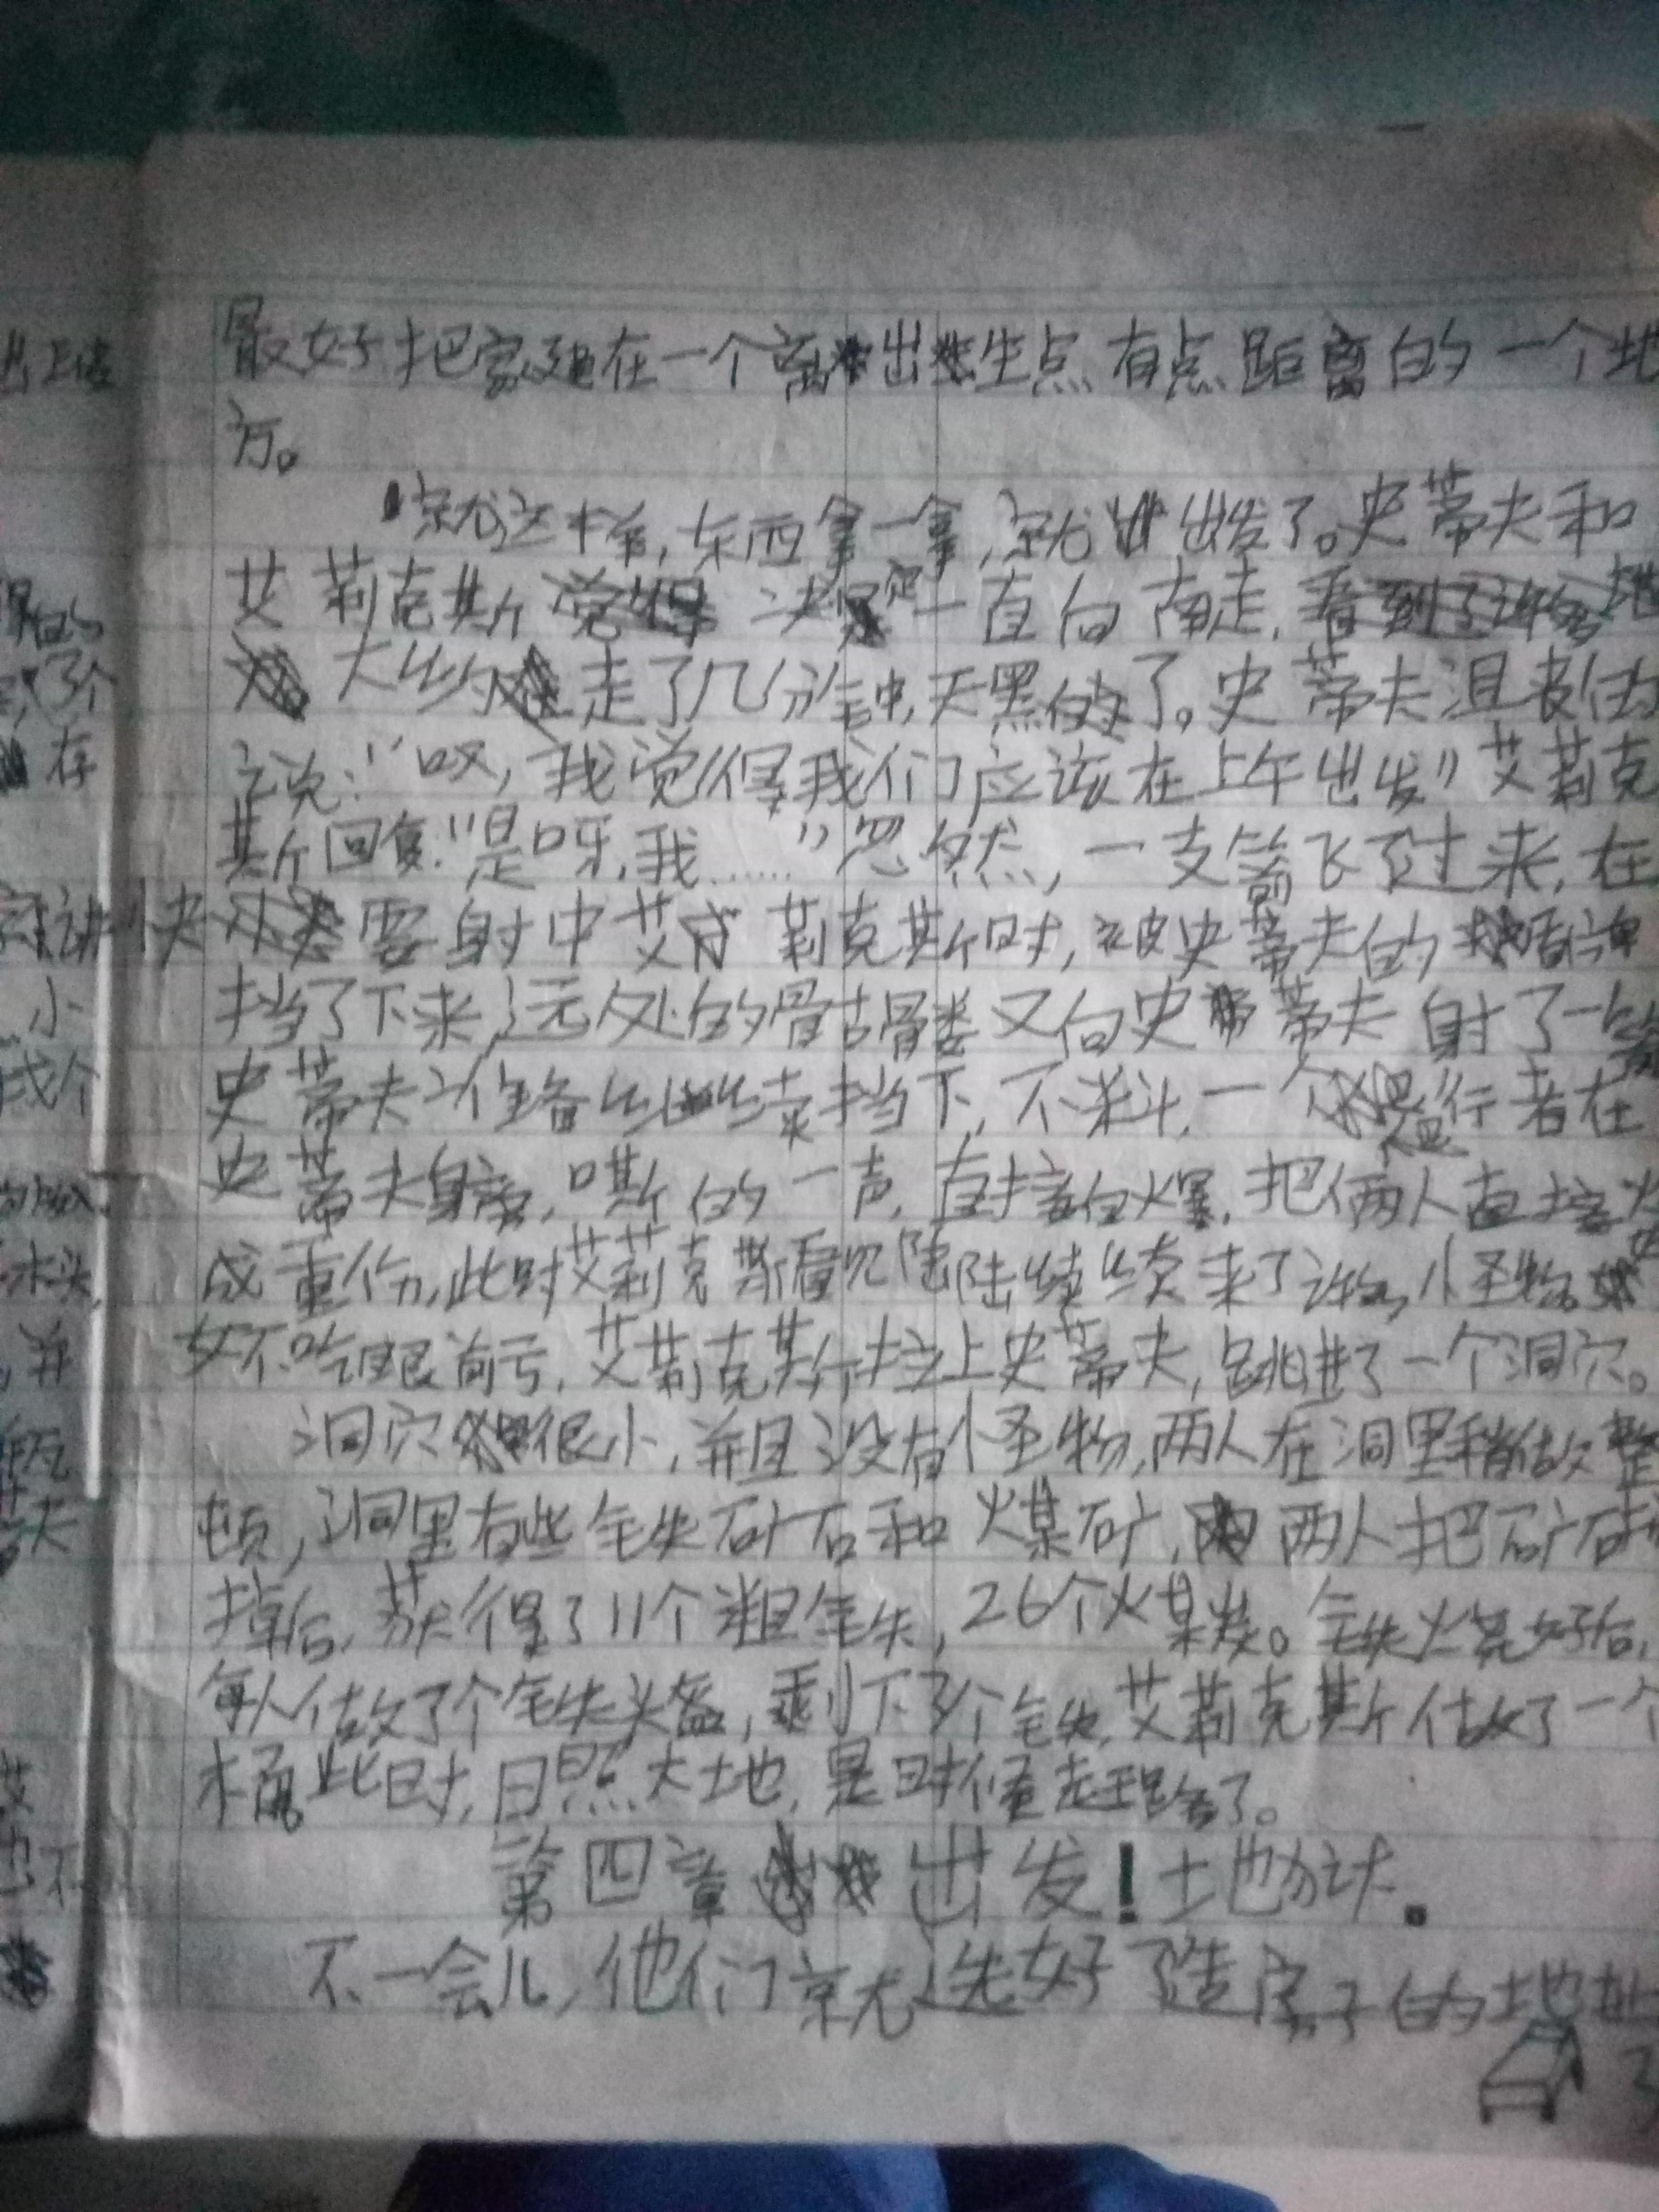 最好把家建在一个离出生点有点距离的一个地
方。
就这样，东西拿一拿，就出发了。史蒂夫和
艾莉克斯决定一直向南走，
大约走了几分钟，天黑了。史蒂夫沮丧的
说：“哎，我觉得我们应该在上午出发”艾莉克
斯回复：“是呀，我……”忽然，一支箭飞了过来，在
快要射中艾莉克斯时，被史蒂夫的盾牌
挡了下来，远处的骷髅又向史蒂夫射了一箭
史蒂夫准备继续挡下，不料，一个爬行者在
史蒂夫身旁，嘶的一声，直接自爆，把俩人直接炸
成重伤，此时艾莉克斯看见陆陆续续来了许多小怪物。
好不吃眼前亏，艾莉克斯拉上史蒂夫，跳进了一个洞穴。
洞穴很小，并且没有怪物，两人在洞里稍做整
顿，洞里有些铁矿石和煤矿，两人把矿石
掉后，获得了11个粗铁，26个煤炭。铁烧好后，
每人做了个铁头盔，剩下了个铁，艾莉克斯做了一个
桶。此时，日照大地，是时候赶路了。
第四章 出发！土地
不一会儿，他们就选好了造房子的地址